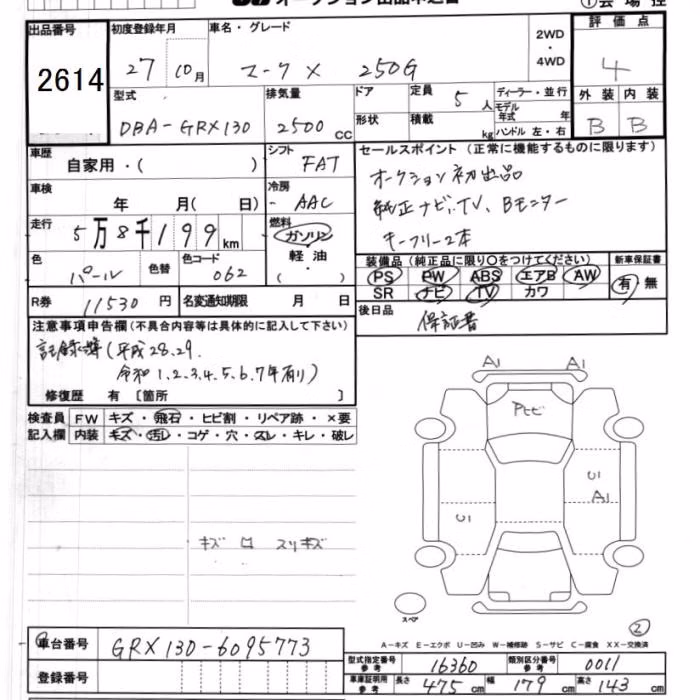 出品番号 2614
初度登録年月 27 10月
車名・グレード マークX 250G
2WD ・ 4WD
評価点 4
型式 DBA-GRX130
排気量 2500 CC
ドア 形状
定員 5人
積載 kg
ディーラー・並行
モデル年式 年
ハンドル 左・右
外装 内装
B B
車歴 自家用・( )
シフト FAT
車検 年 月( 日)
冷房 AAC
走行 5万8千199km
燃料 ガソリン ・ 軽油 ( )
色 パール 色替
色コード 062
R券 11530円
名変通知期限 月 日
セールスポイント (正常に機能するものに限ります)
オークション初出品
純正ナビ、TV、Bモニター
キーフリー2本
装備品(純正品に限り○をつけてください)
PS PW ABS エアB AW
SR ナビ TV カワ
新車保証書 有・無
後日品 保証書
注意事項申告欄(不具合内容等は具体的に記入して下さい)
記録簿(平成28.29.
令和1.2.3.4.5.6.7年有り)
修復歴 有 〔箇所 〕
検査員 FW キズ・飛石・ヒビ割・リペア跡・×要
記入欄 内装 キズ・汚レ・コゲ・穴・スレ・キレ・破レ
キズ ロ スリキズ
A1 A1
U1
A1
U1
スペア
2
A-キズ E-エクボ U-凹み W-補修跡 S-サビ C-腐食 XX-交換済
車台番号 GRX130-6095773
登録番号
型式指定番号 参考 16360
類別区分番号 参考 0011
車庫証明用 参考 長さ 475cm 幅 179cm 高さ 143cm